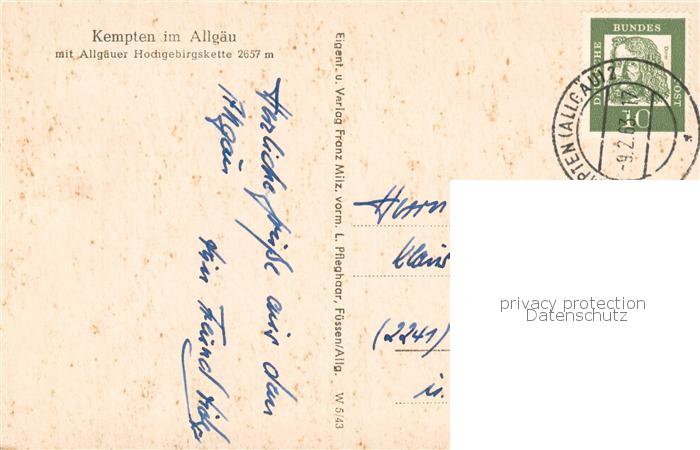 Kempten im Allgäu
mit Allgäuer Hochgebirgskette 2657 m
Herzliche Grüße aus dem
Allgäu
dein Freund
Eigent. u. Verlag Franz Milz, vorm. L. Pfleghaar, Füssen/Allg. W 5/43
DEUTSCHE BUNDESPOST
10
KEMPTEN (ALLGÄU) 2
-9.2.63.-17
Herrn
Klaus
(2241)
in
privacy protection
Datenschutz